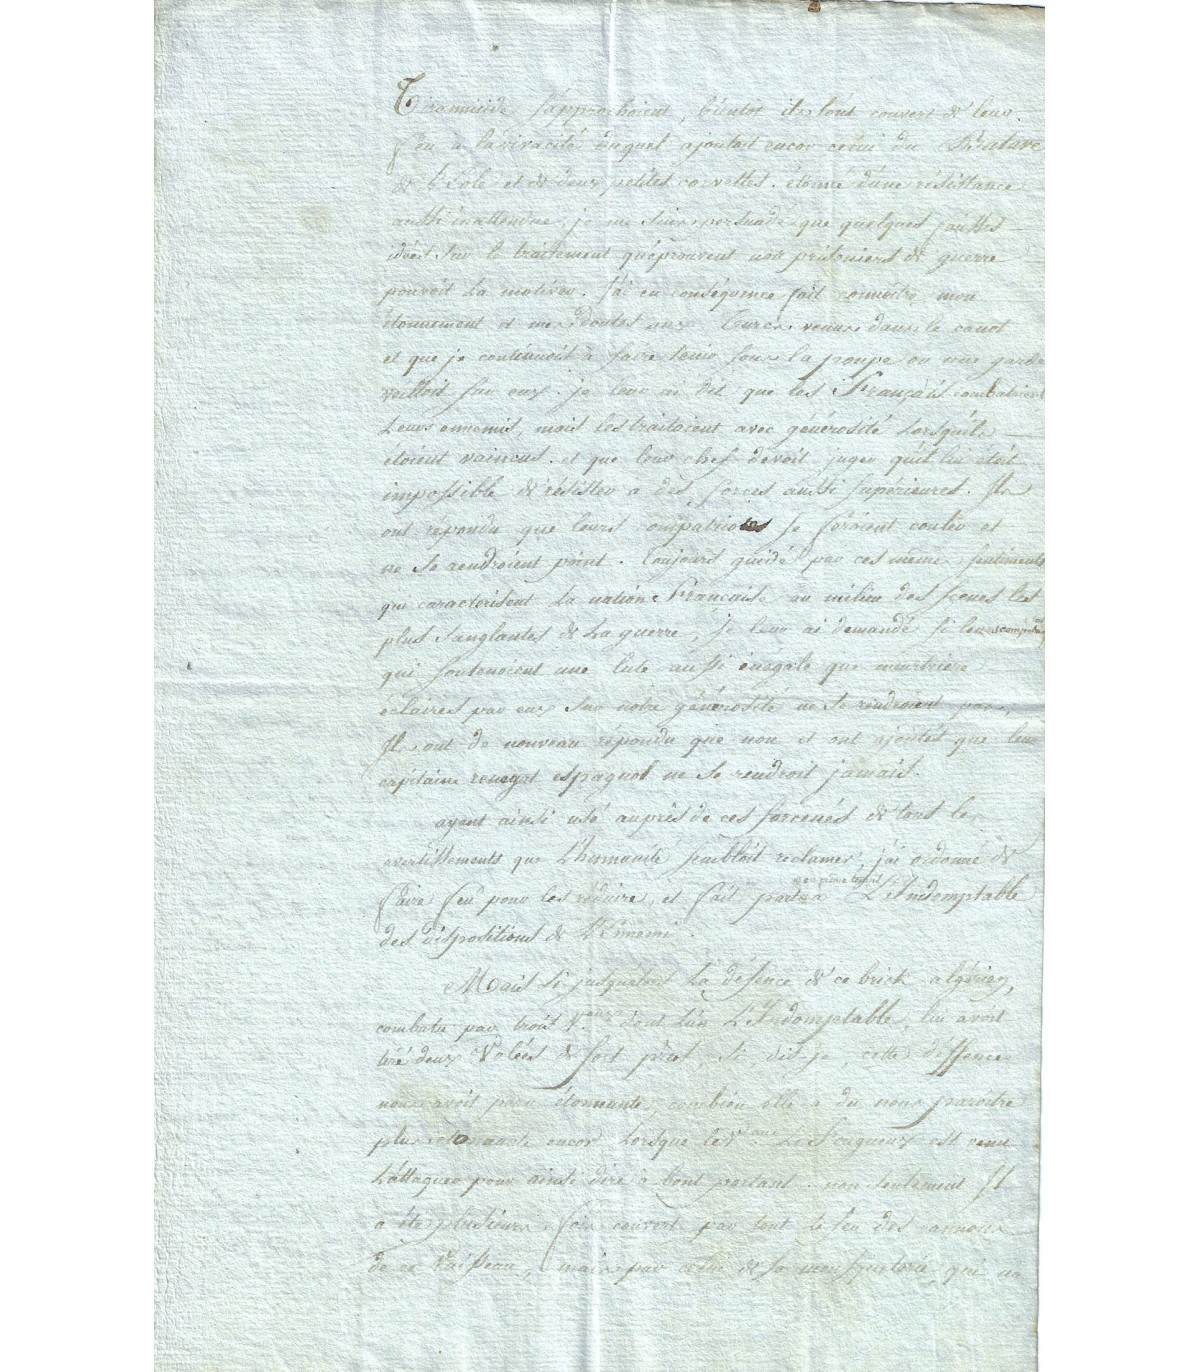 Tiranicide s'approchoient, bientot ils l'ont couvert de leur
feu a la vivacité duquel ajoutoit encor celui du
de l'Ecole et de deux petites corvettes. étonné d'une résistance
aussi inattendue je me suis persuadé que quelques fausses
idées sur le traitement qu'éprouvent nos prisoniers de guerre
pouvoit la motiver. J'ai en conséquence fait connoitre mon
étonnement et mes doutes aux Turcs venus dans le canot
et que je continuois à faire tenir sous la poupe ou une garde
veilloit sur eux. je leur ai dit que les Français combatoient
Leurs ennemis, mais les traitoient avec générosité Lorsqu'ils
étoient vaincus. et que leur chef devoit juger qu'il lui étoit
impossible de résister a des forces aussi supérieures. Ils
ont répondu que leurs compatriotes se feroient couler et
ne se rendroient point. Toujours guidé par ces même sentiments
qui caractérisent La nation Française au milieu des scenes les
plus sanglantes de La guerre, je leur ai demandé si leurs
qui soutenoient une lute aussi inégale que meurtriere
éclairés par eux sur notre générosité ne se rendroient pas,
Ils ont de nouveau répondu que non et ont ajoutés que leur
capitaine renegat espagnol ne se rendroit jamais.
ayant ainsi usé auprès de ces forcenés de tous les
avertissements que L'humanité sembloit réclamer, j'ai ordonné de
faire feu pour les réduire, et fait part a L'Indomptable
des dispositions de L'Ennemi.
Mais si jusqu'alors La défence de ce brick algérien,
combatu par trois V.eaux dont L'un L'Indomptable, lui avoit
tiré deux Volées de fort près, si, dis-je, cette déffence
nous avoit paru étonnante, combien elle a du nous paroitre
plus étonnante encor Lorsque le V.eau Le Fougueux est venu
L'attaquer pour ainsi dire à bout portant. non seulement Il
a été plusieurs fois couvert par tout le feu des cannons
de ce Vaisseau, mais par celui de sa mousqueterie, qui